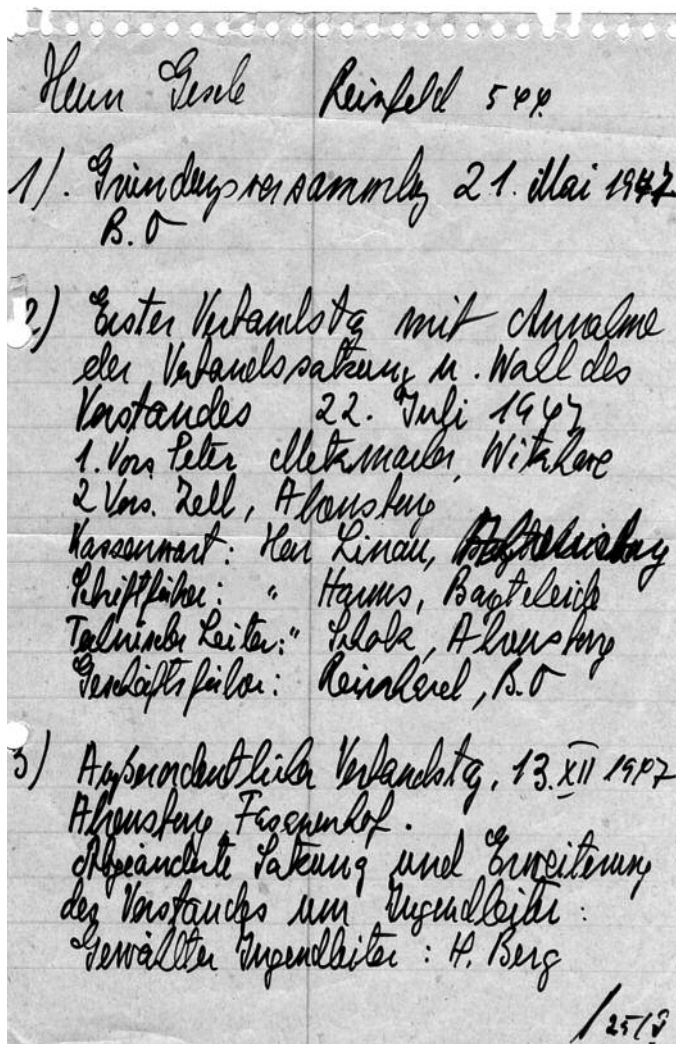 Herrn Gesele Reinfeld 544.
1). Gründungsversammlg 21. Mai 1947
B.O
2.) Erster Verbandstg mit Annahme
der Verbandssatzung u. Wahl des
Vorstandes 22. Juli 1947
1. Vors Peter Metzmacher, Witzhave
2 Vors. Zell, Ahrensburg
Kassenwart: Herr Linau,
Schriftführer: " Harms, Bargteheide
Technischer Leiter: " Scholz, Ahrensburg
Geschäftsführer: B.O
3) Außerordentlicher Verbandstg, 13. XII 1947
Ahrensburg Fasanenhof.
Abgeänderte Satzung und Erweiterung
des Vorstandes um Jugendleiter:
Gewählter Jugendleiter: H. Berg